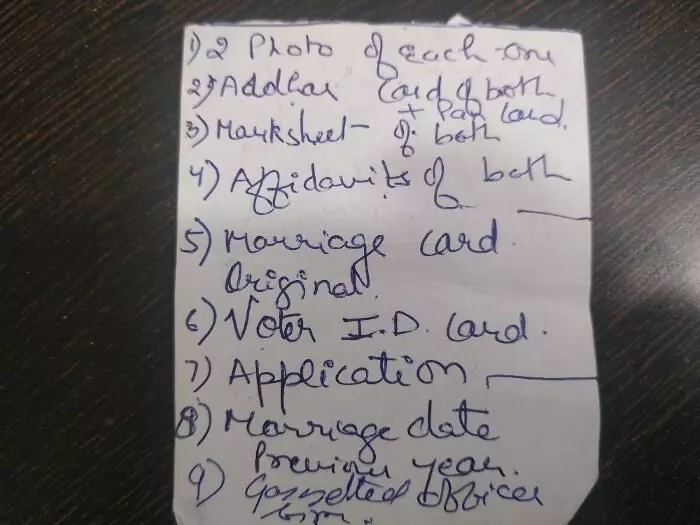 1) 2 Photo of each one
2) Addhar Card of both
+ Pan Card.
3) Marksheet - of both
4) Affidavits of both
5) Marriage Card.
Original.
6) Voter I.D. Card.
7) Application
8) Marriage date
Previous year.
9) Gazzetted officer